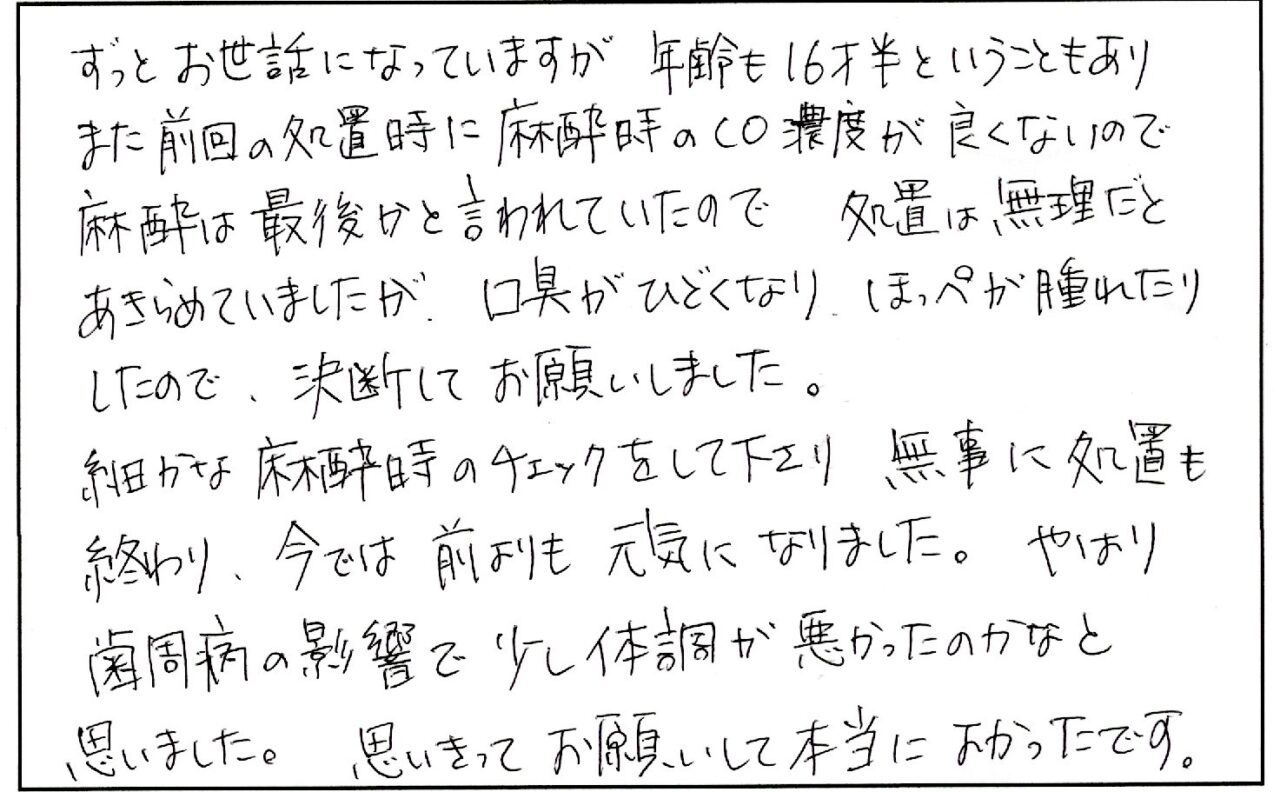 ずっとお世話になっていますが 年齢も16才半ということもあり
また前回の処置時に麻酔時のCO濃度が良くないので
麻酔は最後かと言われていたので 処置は無理だと
あきらめていましたが、口臭がひどくなり、ほっぺが腫れたり
したので、決断してお願いしました。
細かな麻酔時のチェックをして下さり 無事に処置も
終わり、今では前よりも元気になりました。 やはり
歯周病の影響で少し体調が悪かったのかなと
思いました。 思いきってお願いして本当によかったです。